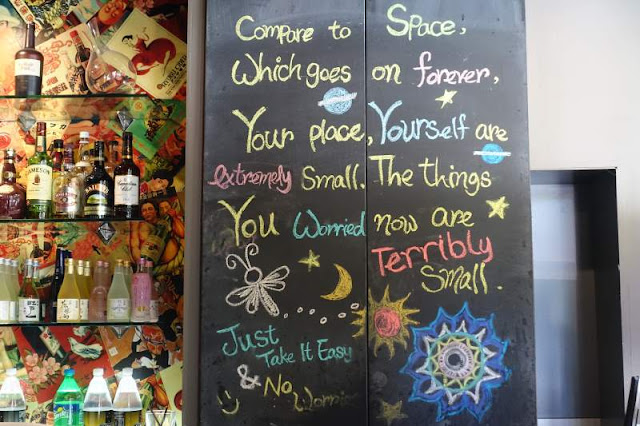 Compare to Space,
Which goes on forever,
Your place, Yourself are
extremely Small. The things
You Worried now are
Terribly
Small.
Just
Take It Easy
& No
Worries
JAMESON